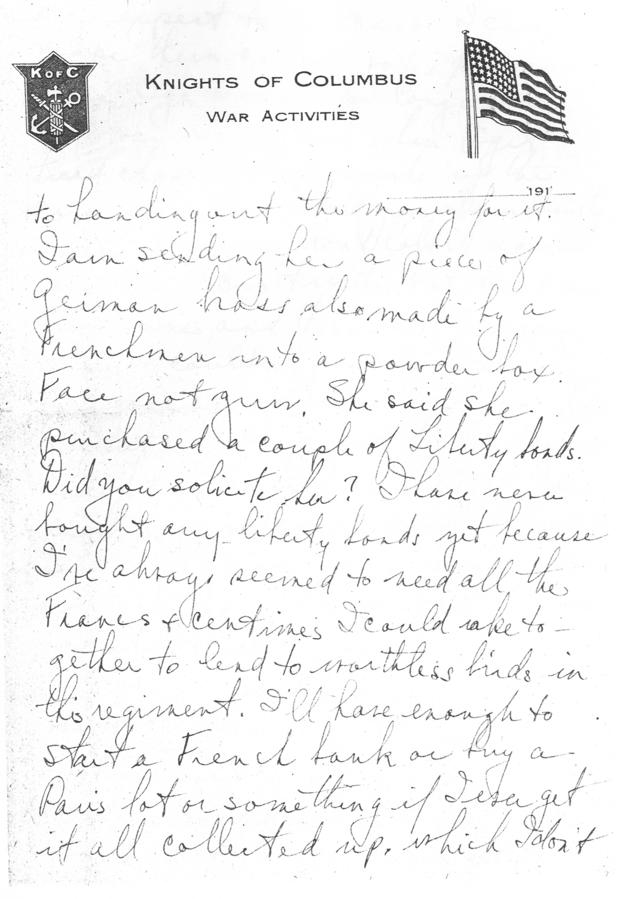 K of C
KNIGHTS OF COLUMBUS
WAR ACTIVITIES
191
to handing out the money for it.
I am sending her a piece of
German brass also made by a
Frenchmen into a powder box.
Face not gun. She said she
purchased a couple of Liberty bonds.
Did you solicite her? I have never
bought any liberty bonds yet because
I've always seemed to need all the
Francs & centimes I could rake to-
gether to lend to worthless birds in
this regiment. I'll have enough to
start a French bank or buy a
Paris lot or something if I ever get
it all collected up. which I don't